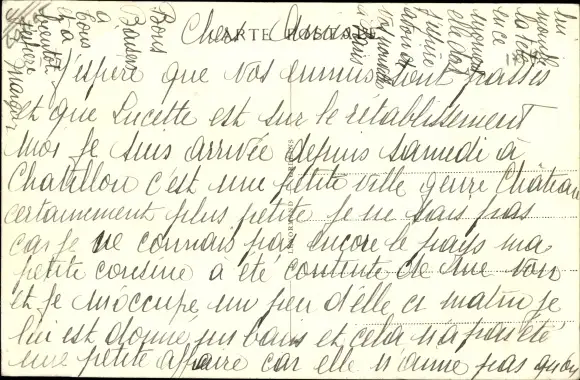 CARTE POSTALE
Chers Amis
J'espère que vos ennuis sont passés
et que Lucette est sur le retablissement
moi je suis arrivée depuis samedi à
Chatillon c'est une petite ville genre Château
certainement plus petite je ne sais pas
car je ne connais pas encore le pays ma
petite cousine à été contente de me voir
et je m'occupe un peu d'elle ce matin je
lui est donné un bain et cela n'a pas été
une petite affaire car elle n'aime pas qu'on
lui
mouille
la tête
en ce
moment
elle dort
Bons
Baisers
à
tous
et à
bientôt